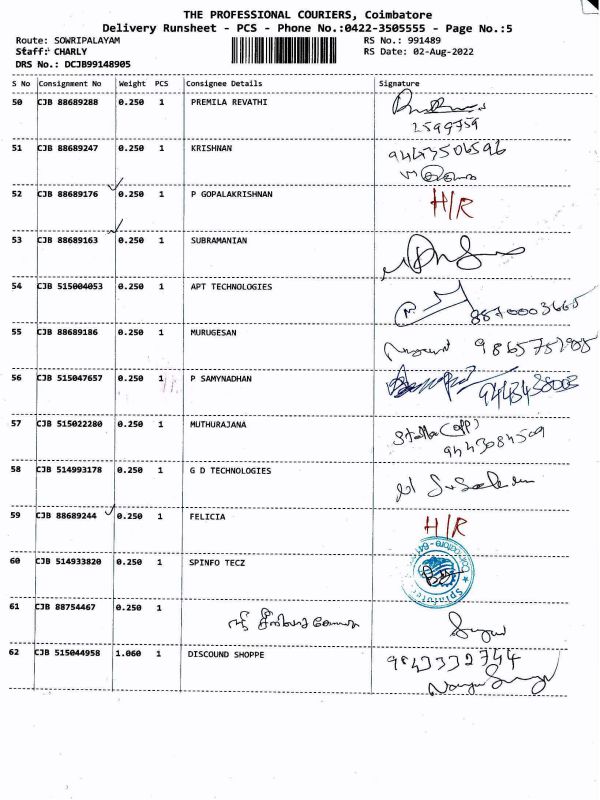 THE PROFESSIONAL COURIERS, Coimbatore
Delivery Runsheet - PCS - Phone No.:0422-3505555 - Page No.:5
Route: SOWRIPALAYAM RS No.: 991489
Staff: CHARLY RS Date: 02-Aug-2022
DRS No.: DCJB99148905
S No Consignment No Weight PCS Consignee Details Signature
50 CJB 88689288 0.250 1 PREMILA REVATHI
2599759
51 CJB 88689247 0.250 1 KRISHNAN 9443506596
52 CJB 88689176 0.250 1 P GOPALAKRISHNAN H/R
53 CJB 88689163 0.250 1 SUBRAMANIAN
54 CJB 515004053 0.250 1 APT TECHNOLOGIES
55 CJB 88689186 0.250 1 MURUGESAN
56 CJB 515047657 0.250 1 P SAMYNADHAN
57 CJB 515022280 0.250 1 MUTHURAJANA
9443084509
58 CJB 514993178 0.250 1 G D TECHNOLOGIES
59 CJB 88689244 0.250 1 FELICIA H/R
60 CJB 514933820 0.250 1 SPINFO TECZ
61 CJB 88754467 0.250 1
62 CJB 515044958 1.060 1 DISCOUND SHOPPE 9843332744